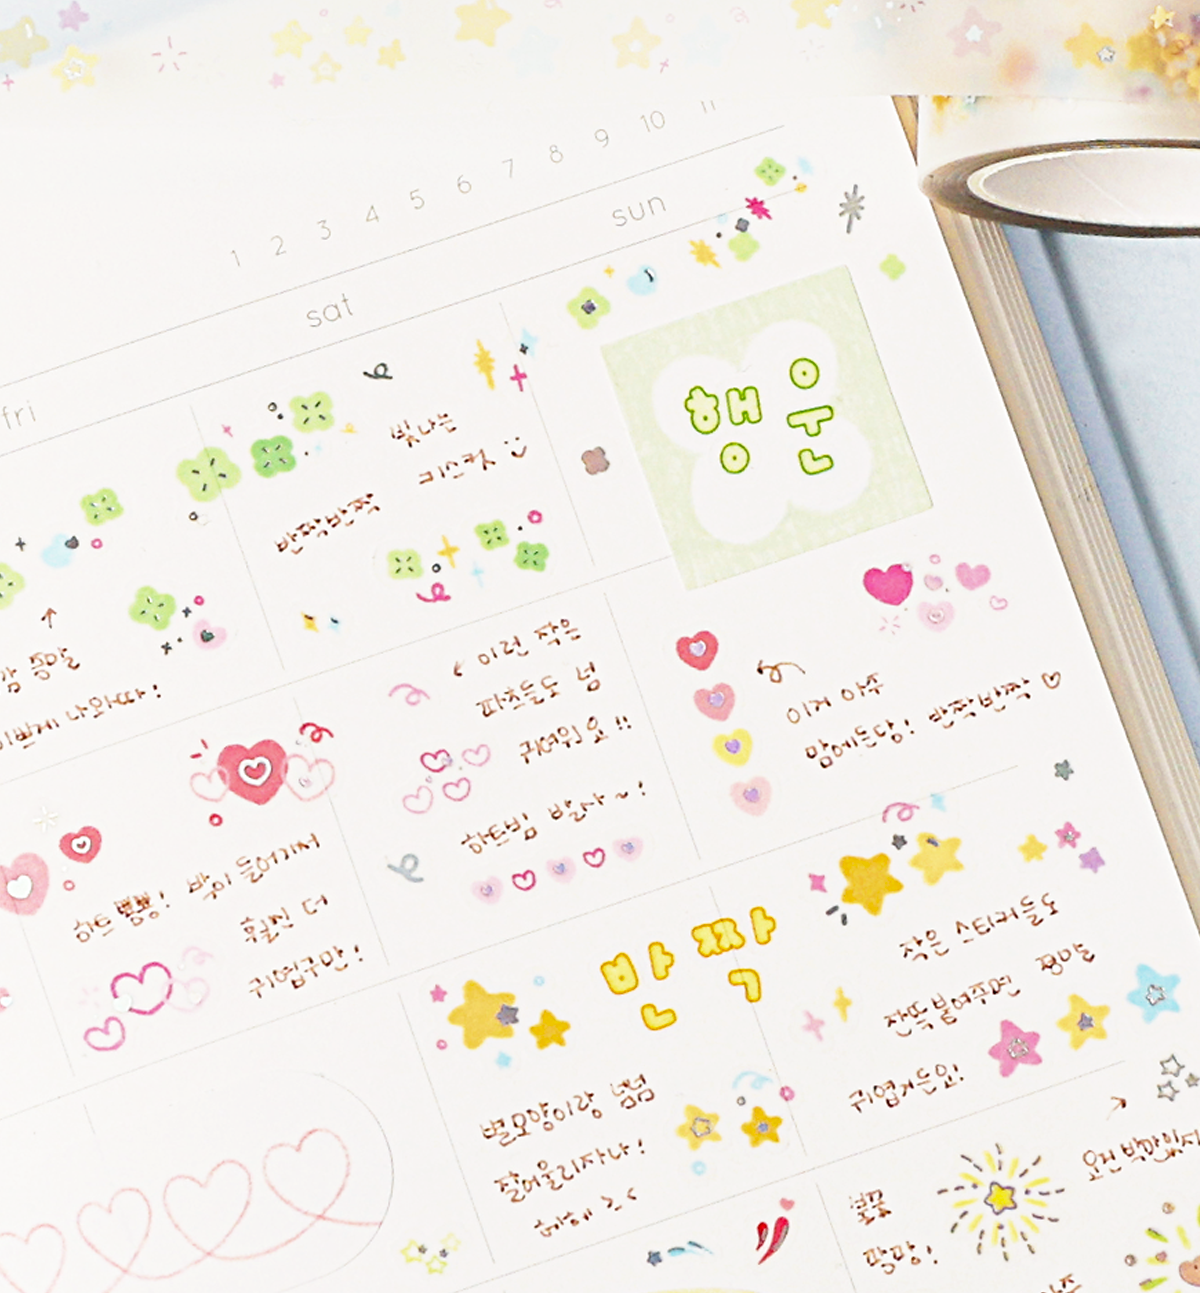 1 2 3 4 5 6 7 8 9 10 11
fri
sat
sun
빛나는
티스켓
반짝반짝
행운
정말
이쁘게 나와따!
이런 작은
파츠들도 넘
귀여워요!!
하트빔 발사~!
이거 아주
맘에든당! 반짝반짝
하트 뿅뿅! 박이 들어가서
훨씬 더
귀엽구만!
반짝
별모양이랑 넘넘
잘어울리자나!
헤헤 > <
작은 스티커들도
정말
잔뜩 붙여주면
귀엽거든요!
불꽃
팡팡!
오전 박만있지